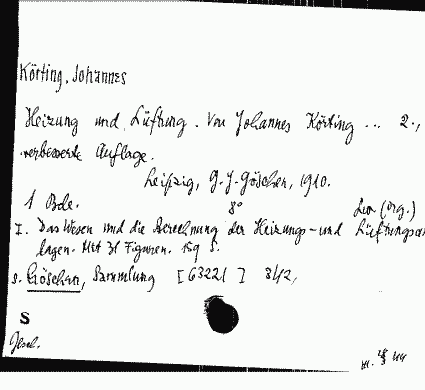 Körting, Johannes
Heizung und Lüftung. Von Johannes Körting ... 2.,
verbesserte Auflage.
Leipzig, G. J. Göschen, 1910.
1 Bde. 8° Lw (Org.)
I. Das Wesen und die Berechnung der Heizungs- und Lüftungsan
lagen. Mit 31 Figuren. 159 S.
s. Göschen, Sammlung [6322/ ] 342,
S